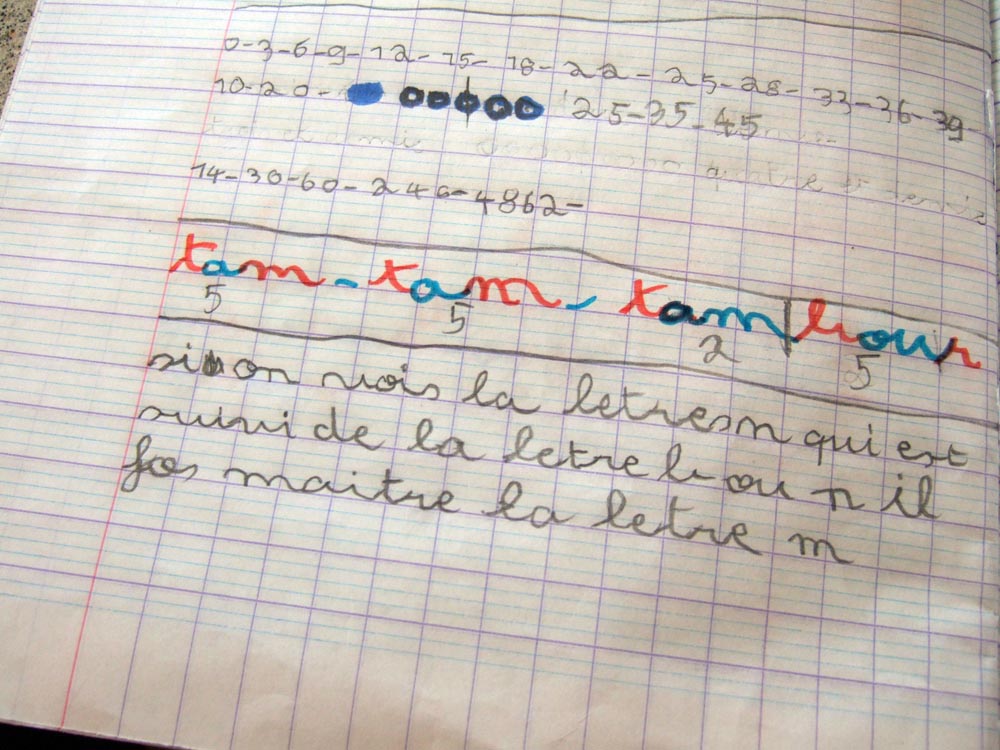 0-3-6-9-12-15-18-22-25-28-33-36-39-
10-20- 25-35-45
14-30-60-246-4862-
tam-tam-tambour
5 5 2 5
si on vois la letre m qui est
suivi de la letre b ou p il
fos maitre la letre m